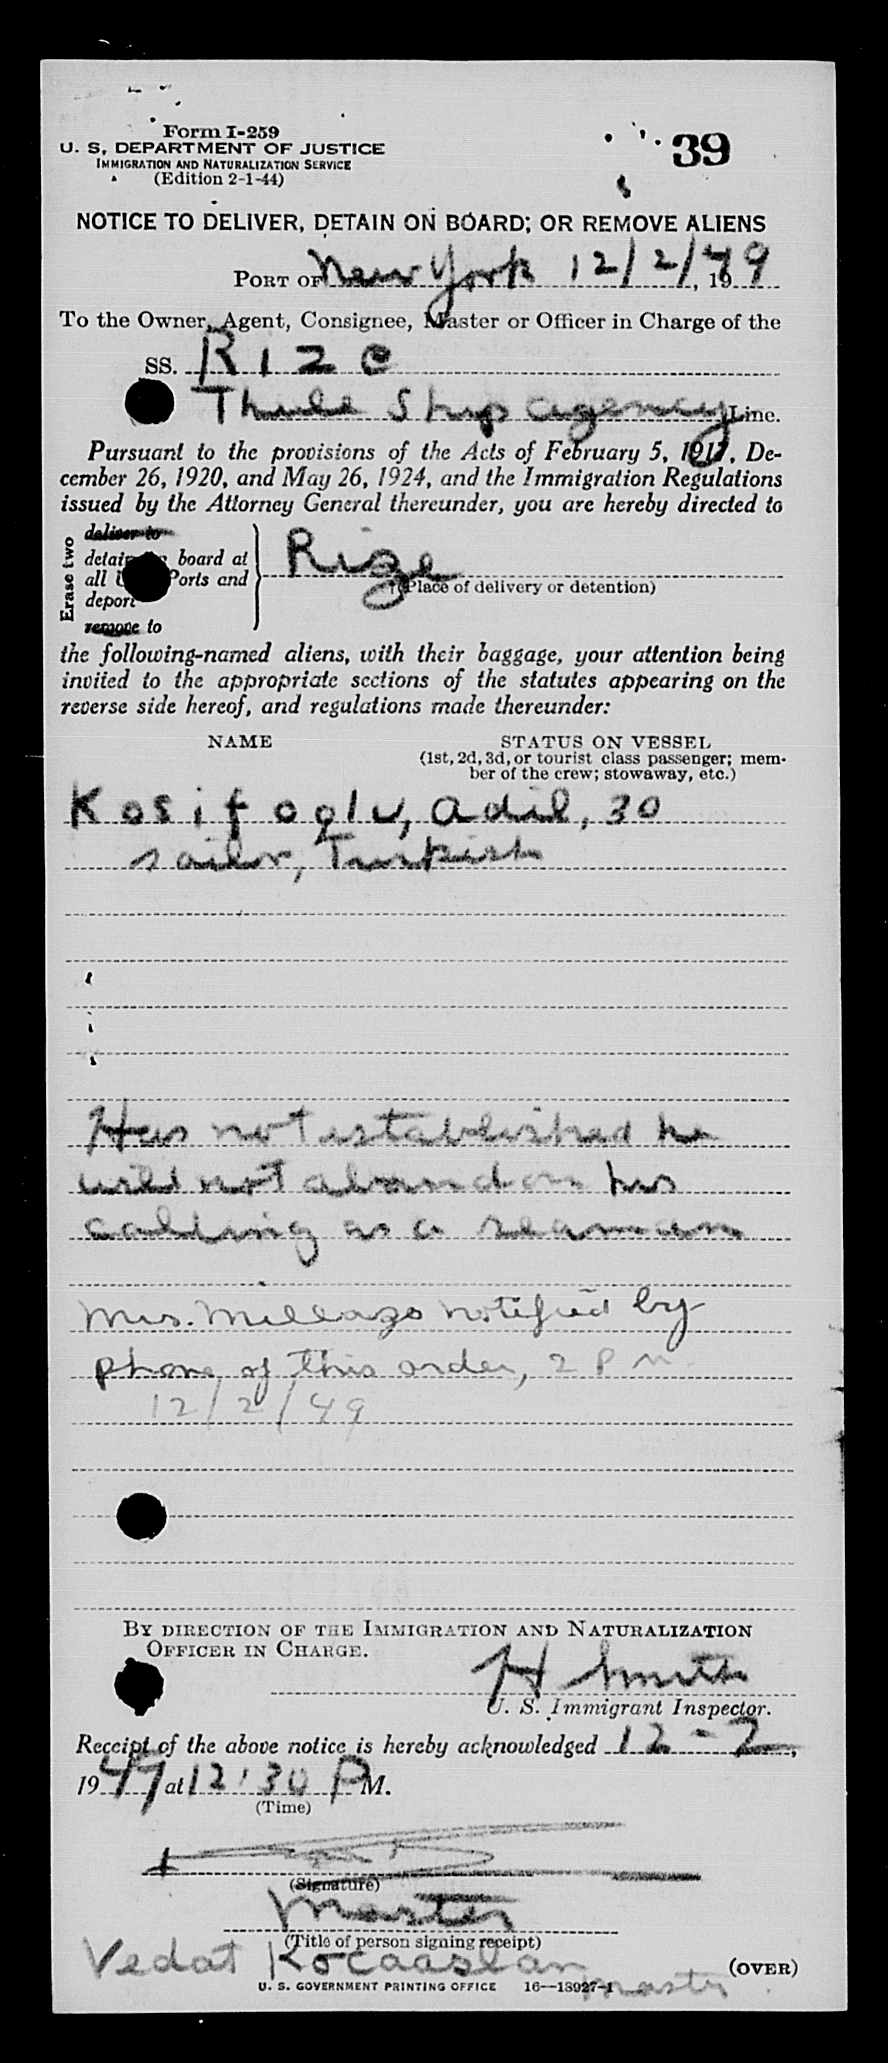 Form I-259
U. S. DEPARTMENT OF JUSTICE
IMMIGRATION AND NATURALIZATION SERVICE
(Edition 2-1-44)
39
NOTICE TO DELIVER, DETAIN ON BOARD; OR REMOVE ALIENS
PORT OF New York 12/2/, 1949
To the Owner, Agent, Consignee, Master or Officer in Charge of the
SS. Rize
Thule Ship Agency Line.
Pursuant to the provisions of the Acts of February 5, 1917, De-
cember 26, 1920, and May 26, 1924, and the Immigration Regulations
issued by the Attorney General thereunder, you are hereby directed to
Erase two
deliver to
detain on board at
all U.S. Ports and
deport
remove to
Rize
(Place of delivery or detention)
the following-named aliens, with their baggage, your attention being
invited to the appropriate sections of the statutes appearing on the
reverse side hereof, and regulations made thereunder:
NAME STATUS ON VESSEL
(1st, 2d, 3d, or tourist class passenger; mem-
ber of the crew; stowaway, etc.)
Kosifoglu, Adil, 30
sailor, Turkish
Has not established he
will not abandon his
calling as a seaman
Mrs. Millazo notified by
phone of this order, 2 PM
12/2/49
BY DIRECTION OF THE IMMIGRATION AND NATURALIZATION
OFFICER IN CHARGE.
H Smith
U. S. Immigrant Inspector.
Receipt of the above notice is hereby acknowledged 12-2,
1949 at 12:30 PM.
(Time)
(Signature)
Master
(Title of person signing receipt)
Vedat Kocaaslan
master
(OVER)
U. S. GOVERNMENT PRINTING OFFICE 16—13927-1